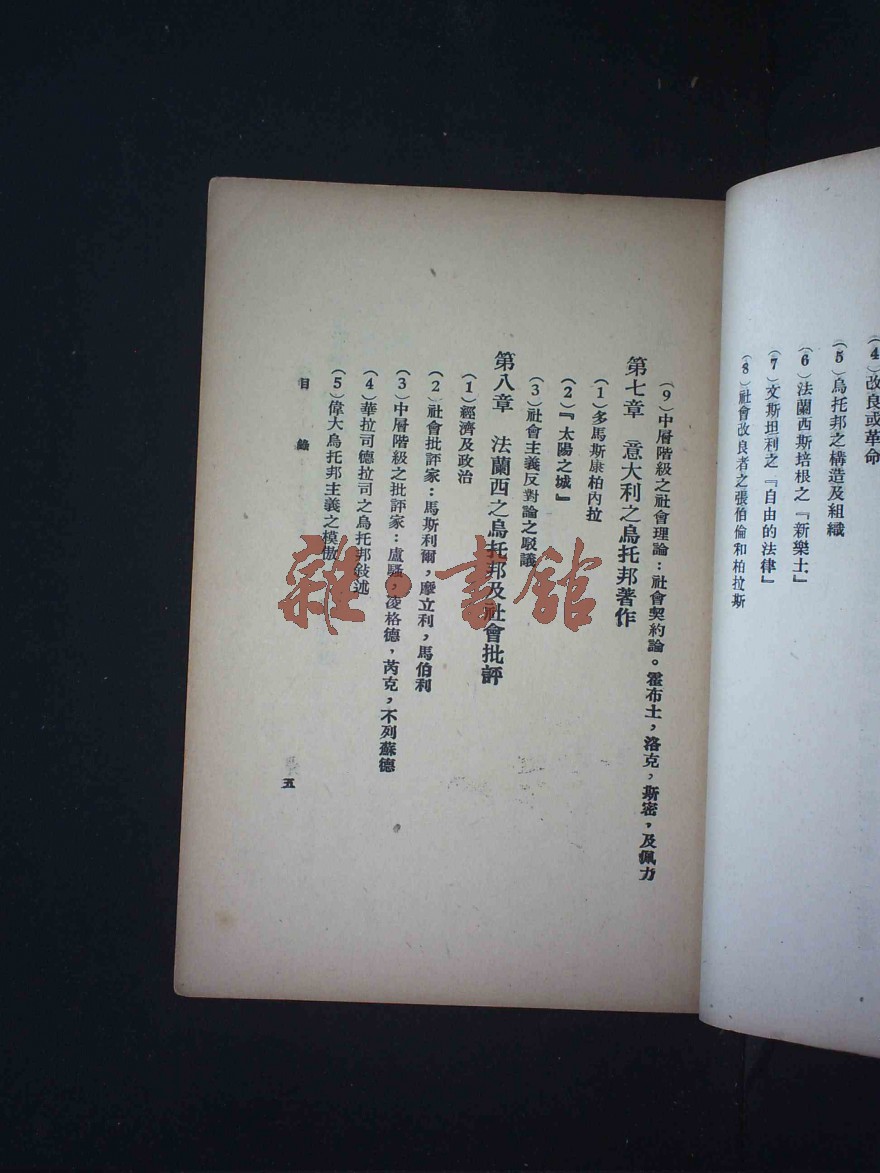 (4)改良或革命
(5)烏托邦之構造及組織
(6)法蘭西斯培根之『新樂土』
(7)文斯坦利之『自由的法律』
(8)社會改良者之張伯倫和柏拉斯
(9)中層階級之社會理論：社會契約論。霍布士，洛克，斯密，及佩力
第七章　意大利之烏托邦著作
(1)多馬斯康柏內拉
(2)『太陽之城』
(3)社會主義反對論之駁議
第八章　法蘭西之烏托邦及社會批評
(1)經濟及政治
(2)社會批評家：馬斯利爾，摩立利，馬伯利
(3)中層階級之批評家：盧騷，凌格德，芮克，不列蘇德
(4)華拉司德拉司之烏托邦敍述
(5)偉大烏托邦主義之模倣
目錄
五
雜·書館